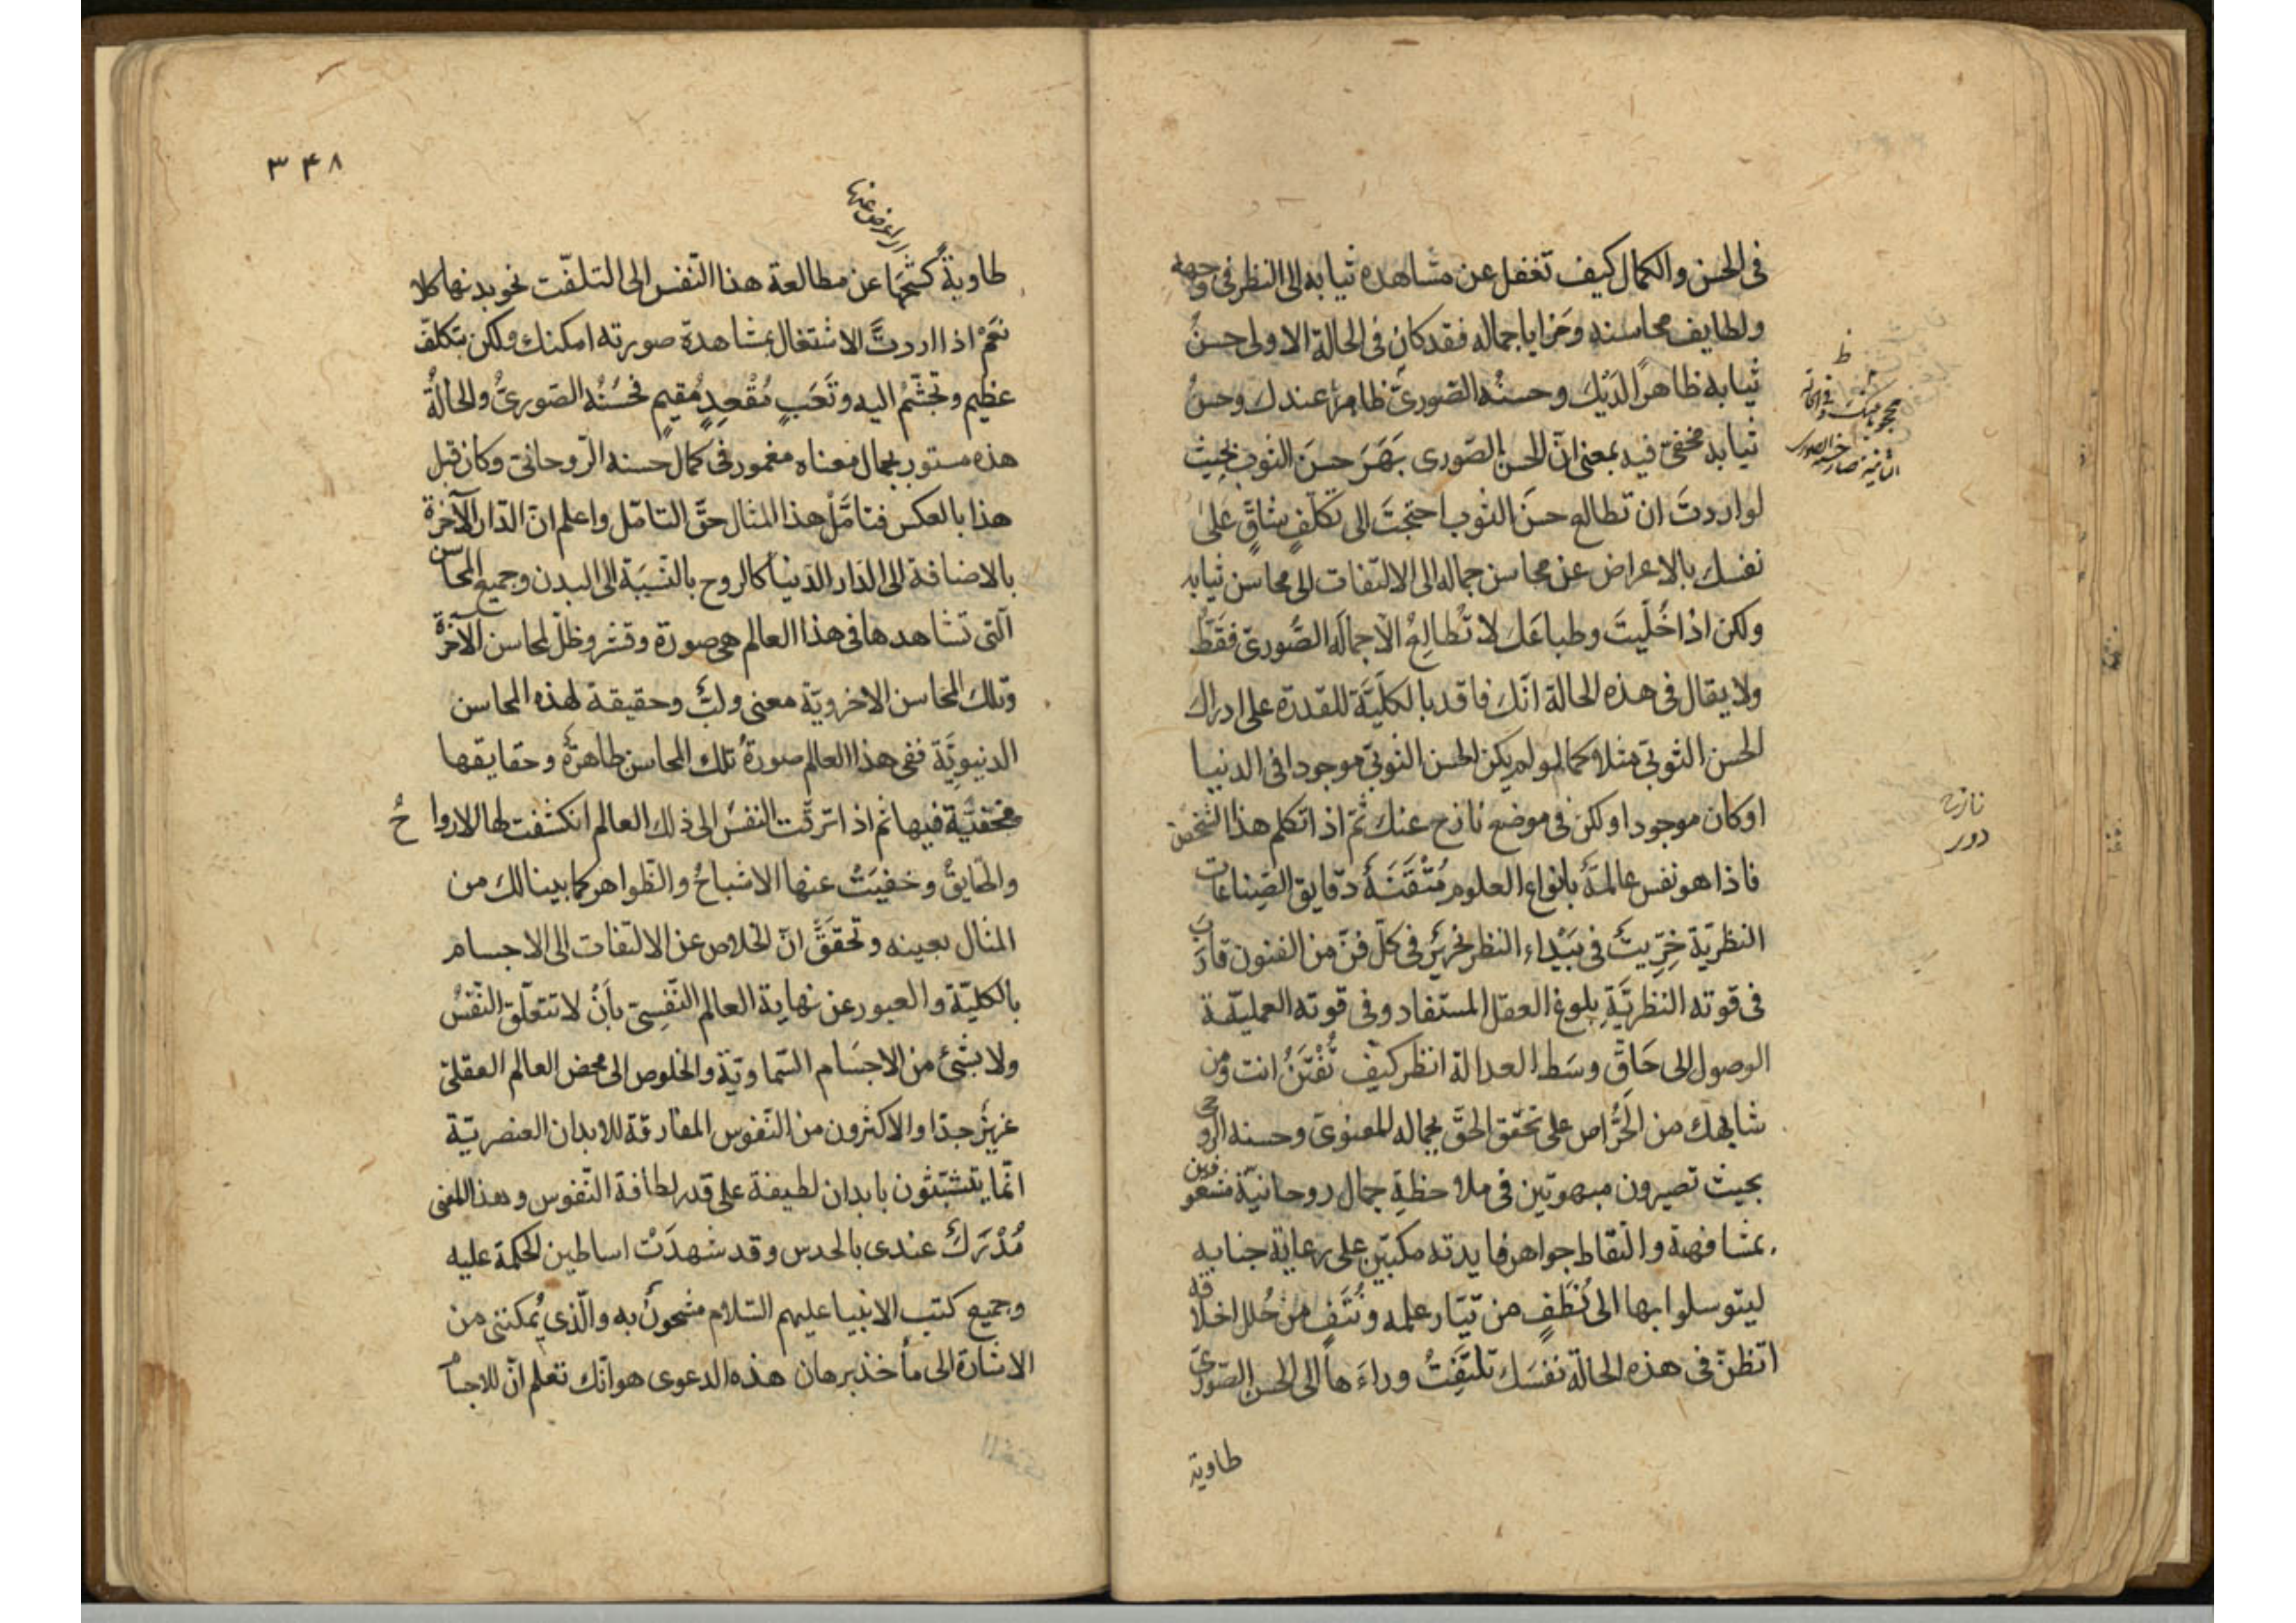 فى الحسن والكمال كيف تغفل عن مشاهدة ثيابه الى النظر فى وجهه
ولطايف محاسنه ومزايا جماله فقد كان فى الحالة الاولى حسنُ
ثيابه ظاهرًا لديك وحسنُه الصّورىّ ظاهرٌ عندك وحسنُ
ثيابه مخفىّ فيه بمعنى انّ الحسن الصّورى بَهَرَ حسنَ الثوب بحيث
لو اردتَ ان تطالع حسنَ الثوب احتجتَ الى تكلّفٍ شاقٍّ على
نفسك بالاعراض عن محاسن جماله الى الالتفات الى محاسن ثيابه
ولكن اذا خُلّيتَ وطباعَك لا تُطالِعُ الّا جمالَه الصُّورىّ فقَطْ
ولا يقال فى هذه الحالة انّك فاقد بالكلّيّة للقدرة على ادراك
الحسن الثوبىّ مثلا كما لو لم يكن الحسن الثوبىّ موجودا فى الدنيا
او كان موجودا ولكن فى موضع نازح عنك ثمّ اذا تكلم هذا الشخص
فاذا هو نفس عالمةٌ بانواع العلوم مُتْقَنَةٌ دقايق الصّناعات
النظريّة خِرّيتٌ فى بَيْداء النظر نحريرٌ فى كلّ فنّ من الفنون قارَبَ
فى قوته النظريّةِ بلوغ العقل المستفاد وفى قوته العمليّة
الوصول الى حَاقّ وسَط العدالة انظر كيف تُفْتَنُ انت ومن
شابهك من الحُرّاص على تحقّق الحقّ بجماله المعنوىّ وحسنه الروحى
بحيث تصيرون مبهوتين فى ملاحظةِ جمال روحانيّة مشعوفين
بمشافهة والتقاط جواهر فايدته مكبّين على رعاية جنابه
ليتوسلوا بها الى نُطَفٍ من تيّار علمه ونُتَفٍ من حُلل اخلاقه
اتظنّ فى هذه الحالة نفسَك تلتفِتُ وراءَها الى الحسن الصّورىّ
طاوية
نازح
دور
٣٤٨
طاويةً كشحَها عن مطالعة هذا النّفس الى التلفّت نحو بدنها كلا
نعَمْ اذا اردتَّ الاشتغال بمشاهدة صورته امكنك ولكن بتكلّف
عظيم وتجشّمُ اليه وتَعَبٍ مُقْعِدٍ مُقيمٍ فحُسْنُه الصّورىُّ والحالةُ
هذه مستور بجمال معناه مغمور فى كمال حسنه الرّوحانىّ وكان قبل
هذا بالعكس فتامَّلْ هذا المثال حقَّ التامّل واعلم انّ الدّار الآخرة
بالاضافة الى الدّار الدّنيا كالروح بالنّسبَة الى البدن وجميع المحاسن
الّتى تشاهدها فى هذا العالم هى صورة وقشر وظلّ لمحاسن الآخرة
وتلك المحاسن الاخرويّة معنى ولبٌّ وحقيقة لهذه المحاسن
الدنيويَّة ففى هذا العالم صورةُ تلك المحاسن ظاهرةٌ وحقايقها
مخفيّة فيها ثم اذا ترقّت النفسُ الى ذلك العالم انكشفت لها الارواحُ
والحقايقُ وخفيَتْ عنها الاشباحُ والظّواهر كما بينا لك من
المثال بعينه وتحقّقَ انّ الخلاص عن الالتفات الى الاجسام
بالكليّة والعبور عن نهاية العالم النّفسىّ بأنْ لا تتعلّق النّفسُ
ولا بشئ من الاجسَام السّماويّة والخلوص الى محض العالم العقلىّ
عزيزٌ جدّا والاكثرون من النّفوس المفارقة للابدان العنصريّة
انّما يتشبّثون بابدان لطيفة على قدر لطافة النّفوس وهذا المعنى
مُدْرَكٌ عندى بالحدس وقد شهدَتْ اساطين الحكمة عليه
وجميع كتب الانبيا عليهم السّلام مشحونٌ به والّذى يُمكننى من
الاشارة الى مأخذ برهان هذه الدعوى هو انّك تعلم انّ للاجسام